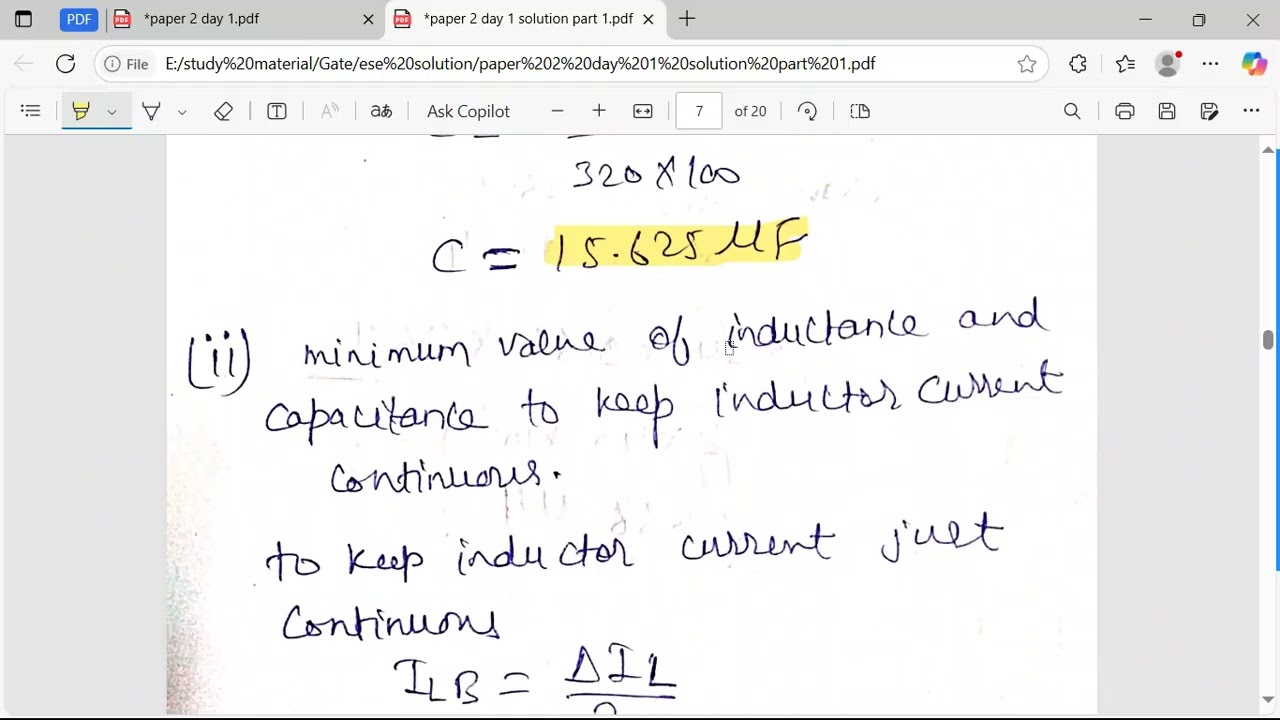 PDF
*paper 2 day 1.pdf
*paper 2 day 1 solution part 1.pdf
File
E:/study%20material/Gate/ese%20solution/paper%202%20day%201%20solution%20part%201.pdf
aあ
Ask Copilot
7
of 20
320 X 100
C = 15.625 μF
(ii) minimum value of inductance and
capacitance to keep inductor current
continuous.
to keep inductor current just
continuous
ILB = ΔIL